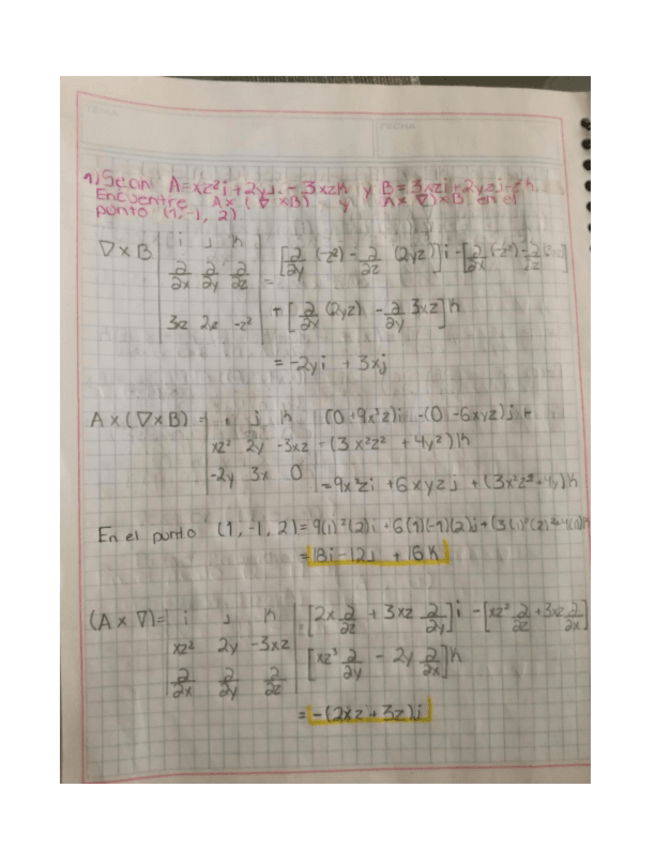 TEMA
FECHA
1) Sean A=xz²i+2yj-3xzk y B=3xzi+2yzj-z²k.
Encuentre A×(∇×B) y (A×∇)×B en el
punto (1,-1,2)
∇×B | i j k
∂/∂x ∂/∂y ∂/∂z
3xz 2x -z² | = [∂/∂y (-z²) - ∂/∂z (2yz)]i - [∂/∂x (-z²) - ∂/∂z
+ [∂/∂x (2yz) - ∂/∂y 3xz]k
= -2yi + 3xj
A×(∇×B) = | i j k | (0+9x²z)i -(0-6xyz)j +
xz² 2y -3xz = (3x²z² + 4y²)k
-2y 3x 0 | = 9x²zi + 6xyzj + (3x²z²+4y)k
En el punto (1,-1,2) = 9(1)²(2)i + 6(1)(-1)(2)j + (3(1)²(2)²+4(1)k
= 18i - 12j + 16k
(A×∇) = | i j k | = [2x ∂/∂z + 3xz ∂/∂y]i - [xz² ∂/∂z + 3xz ∂/∂x]
xz² 2y -3xz
∂/∂x ∂/∂y ∂/∂z | [xz³ ∂/∂y - 2y ∂/∂x]k
= -(2xz + 3z)j